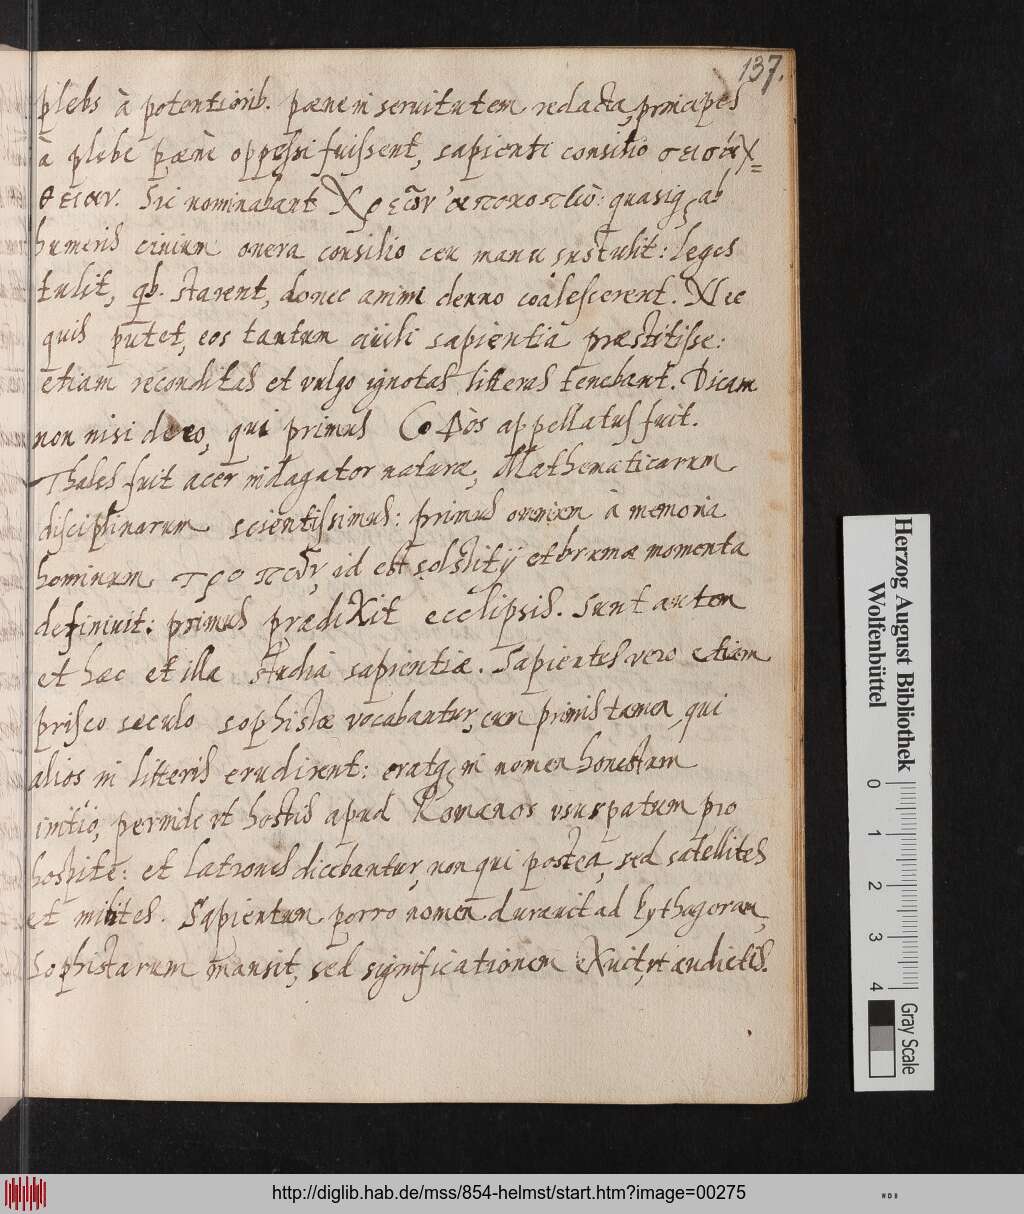 137.
plebs à potentiorib. pæne in servitutem redacta, principes
à plebe pæne oppressi fuissent, sapienti consilio σεισάχ=
θειαν. Sic nominabant Χρεῶν ἀποκοπὴν: quasiq, ab
humeris civium onera consilio ceu manu sustulit: leges
tulit, qb. starent, donec animi denuo coalescerent. Nec
quis putet, eos tantum civili sapientia præstitisse:
etiam reconditas et vulgo ignotas litteras tenebant. Dicam
non nisi de eo, qui primus Σοφὸς appellatus fuit.
Thales fuit acer indagator naturæ, Mathematicarum
disciplinarum scientissimus: primus omnium à memoria
hominum τροπῶν id est solstitij et brumæ momenta
definivit: primus prædixit ecclipsis. Sunt autem
et hæc et illa studia sapientiæ. Sapientes vero etiam
prisco sæculo sophistæ vocabantur, cum primis tamen, qui
alios in litteris erudirent: eratq, in nomen honestum
initio, perinde ut hostis apud Romanos usurpatum pro
hospite: et latrones dicebantur, non qui postea, sed satellites
et milites. Sapientum porro nomen duravit ad Pythagoram,
Sophistarum mansit, sed significationem exuit, ut audietis.
Herzog August Bibliothek
Wolfenbüttel
0 1 2 3 4
Gray Scale
http://diglib.hab.de/mss/854-helmst/start.htm?image=00275